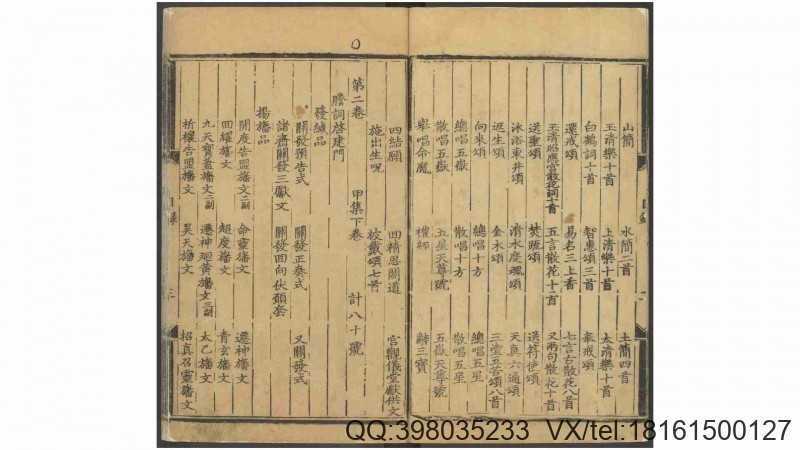 山簡 水簡二首 土簡四首
玉清樂十首 上清樂十首 太清樂十首
白鶴詞十首 智惠頌三首 奉戒頌
還戒頌 易名三上香 七言古散花八首
五言散花十首 又兩句散花十首
送聖頌 焚 頌 送符使頌
沐浴東井頌 天鼎六通頌
返生頌 金永頌 三塗五苦頌八首
向來頌 總唱十方 總唱五星
總唱五嶽 散唱十方 散唱五星
散唱五嶽 五星天尊號 五嶽天尊號
舉唱命魔 禮師 辭三寶
四結願 四精思關道 官觀儀堂獻供文
施出生呪 披戴頌七首
第二卷 甲集下卷 計八十號
謄詞啓建門
發緘品
關發預告式 關發正奏式 又關發式
諸齋關發三獻文 關發回向伏願套
揚旛品
開度告盟旛文二副 命靈旛文 遷神旛文
回耀旛文 超度旛文 青玄旛文
九天寶蓋旛文二副 遷神迴黄旛文三副 太乙旛文
祈禳告盟旛文 昊天旛文 招真召靈旛文
目錄
三
QQ:398035233 VX/tel:18161500127